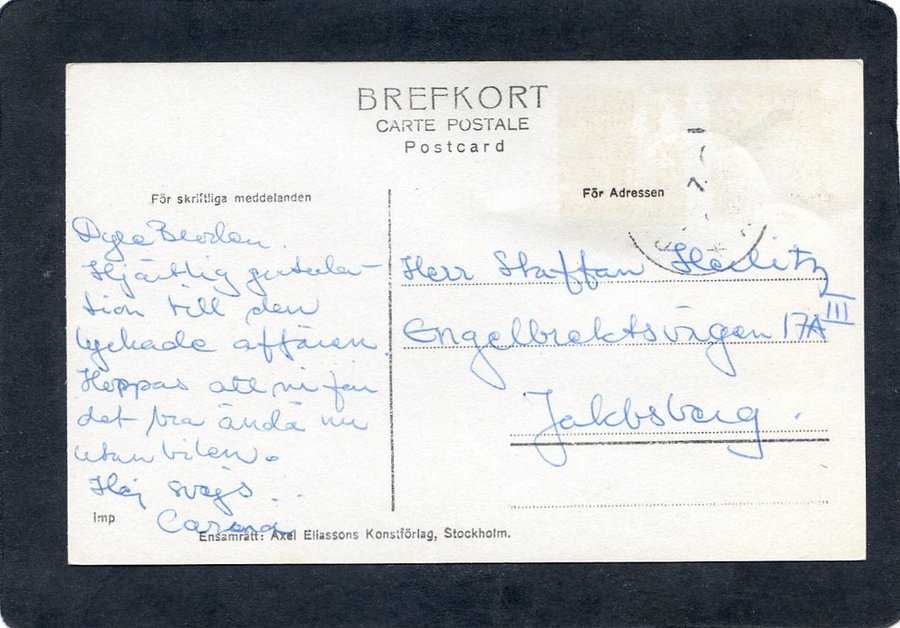 BREFKORT
CARTE POSTALE
Postcard
För skriftliga meddelanden
För Adressen
Hjärtlig gratula-
tion till den
lyckade affären
Hoppas att ni får
det bra ändå nu
utan bilen.
Hej svejs...
Carona
Herr Staffan Heilitz
Engelbrektsvägen 17A III
Jakobsberg.
imp
Ensamrätt: Axel Eliassons Konstförlag, Stockholm.